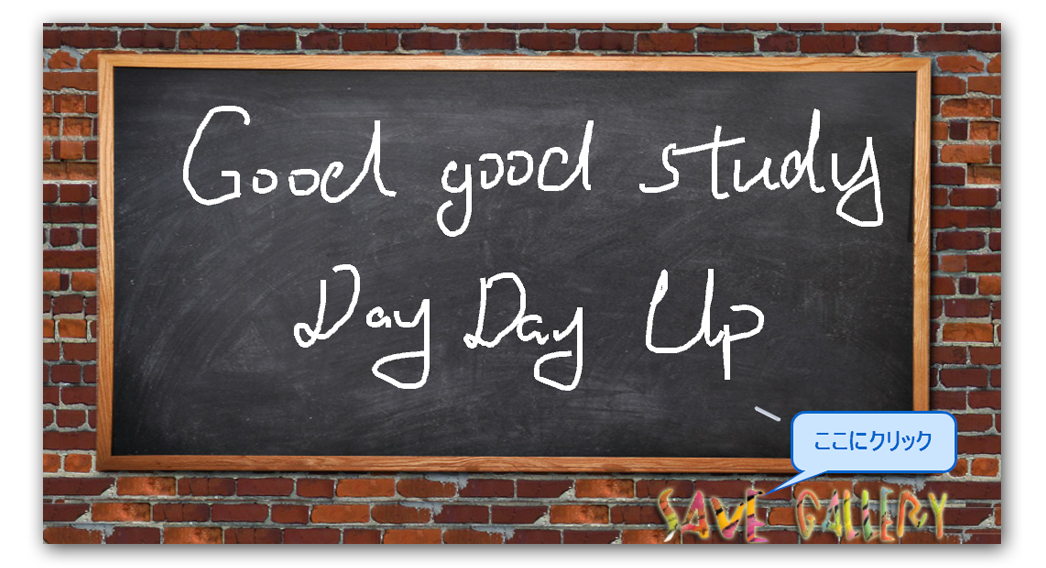 Good good study
Day Day Up
ここにクリック
SAVE GALLERY